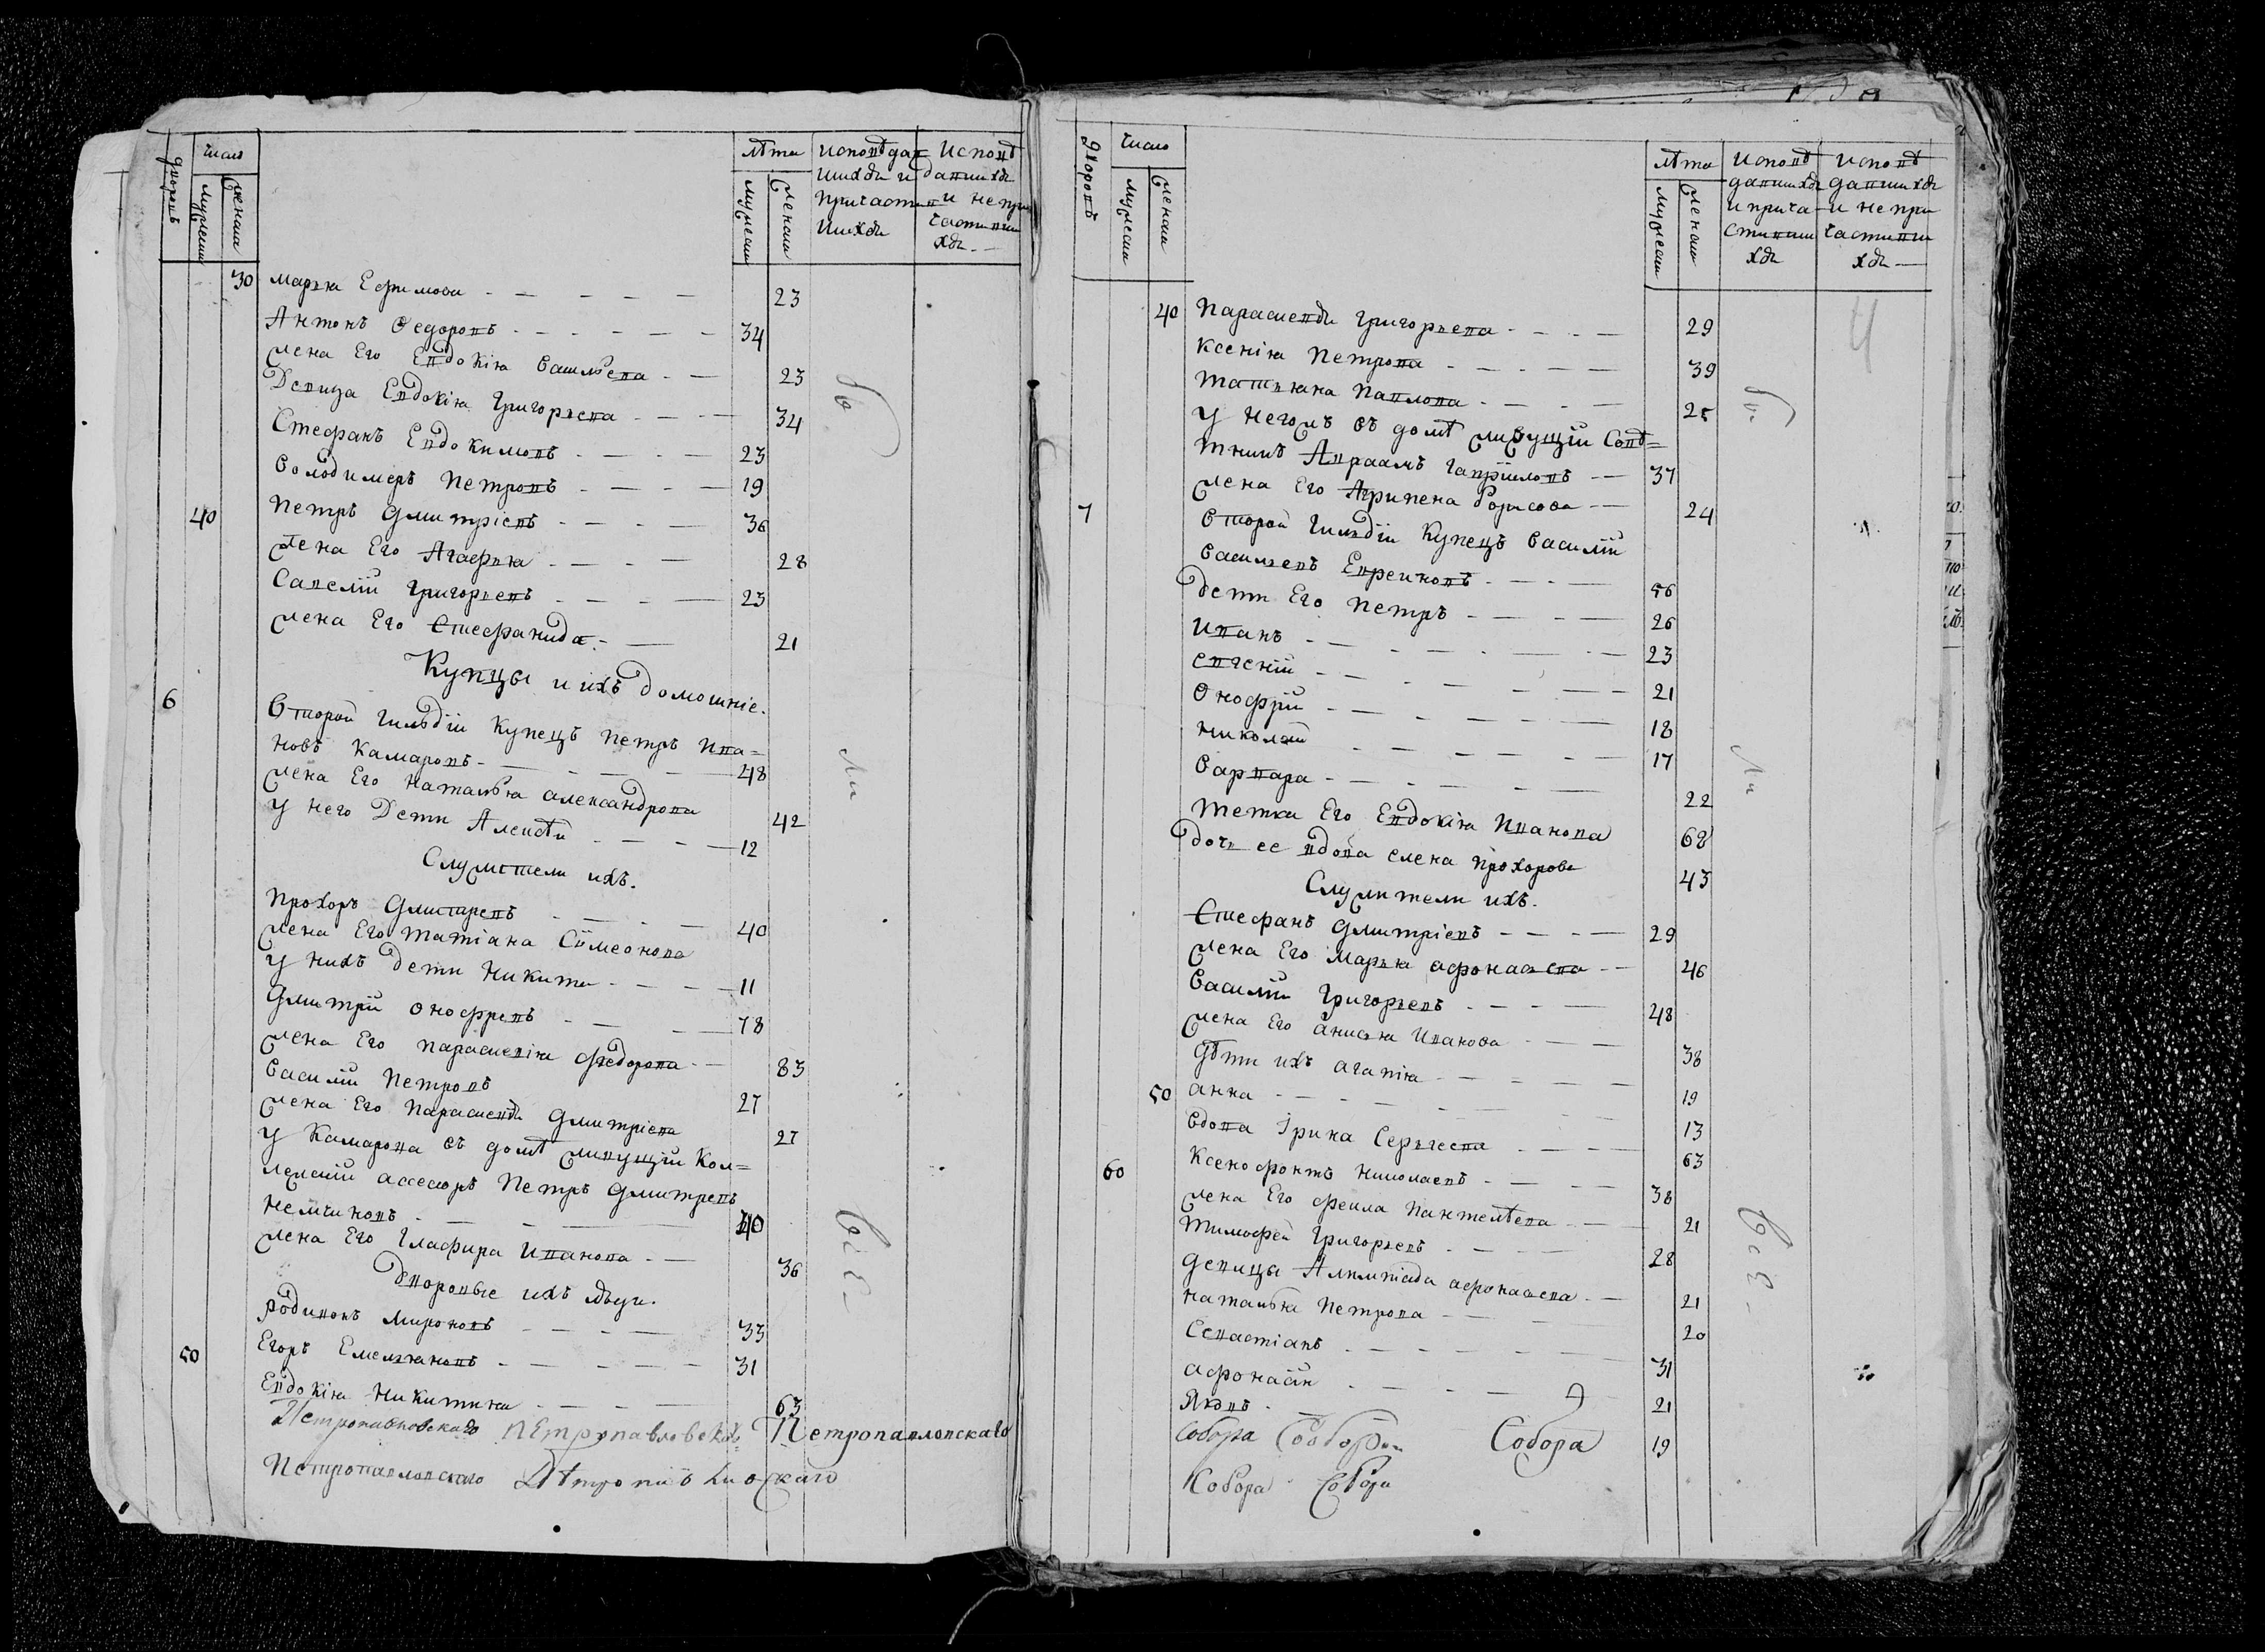 дворовъ
число
мужеска
женска
лѣта
мужеска
женска
исповѣдав=
шихся и
причастив=
шихся
исповѣ
давшихся
и не при
частивши
хся
30 марья Ефимова 23
Антонъ Федоровъ 34
жена Его Евдокiя Васильева 23
Девица Евдокiя Григорьева 34
Стефанъ Евдокимовъ 23
Володимеръ Петровъ 19
40 Петръ Дмитрiевъ 36
жена Его Агафья 28
Савелiй Григорьевъ 23
жена Его Стефанида 21
Купцы и ихъ домошнiе.
6 Второй гильдiи купецъ Петръ Ива=
новъ Камаровъ 48
жена Его Наталья александрова 42
у него Дети Алексѣй 12
Служители ихъ.
Прохоръ Дмитревъ 40
жена Его Татiана Сiмеонова
у нихъ дети Никита 11
Дмитрiй Онофревъ 78
жена Его парасковiя Федорова 83
Василiй Петровъ 27
жена Его Парасковья Дмитрiева 27
у Камарова въ домѣ живущiй Кол=
лежскiй ассесоръ Петръ Дмитревъ
Немчиновъ 40
жена Его Глафира Иванова 36
Дворовые ихъ люди.
Родивонъ Мироновъ 33
50 Егоръ Емельяновъ 31
Евдокiя Никитина 63
Петропавловскаго Петропавловскаго Петропавловскаго
Петропавловскаго
дворовъ
число
мужеска
женска
лѣта
мужеска
женска
исповѣ
давшихся
и прича=
стивши
хся
исповѣ
давшихся
и не при
частивши
хся
40 Парасковья Григорьева 29
Ксенiя Петрова 39
Татьяна Павлова 25
у негожъ въ домѣ живущiй Совѣ=
тникъ Авраамъ Гаврiиловъ 37
жена Его Агрипена Борисова 24
7 Второй гильдiи Купецъ Василiй
Васильевъ Евреиновъ 56
Дети Его Петръ 26
Иванъ 23
евгенiй 21
Онофрiй 18
Николай 17
Варвара 22
Тетка Его Евдокiя Иванова 68
дочь ее вдова елена Прохорова 43
Служители ихъ.
Стефанъ Дмитрiевъ 29
жена Его Марья афонасьева 46
Василiй Григорьевъ 48
жена Его анисья Иванова 38
Дѣти ихъ агапiя 19
50 анна 13
Вдова Ирина Сергеева 63
60 Ксенофонтъ Николаевъ 38
жена Его фекла Пантелѣева 21
Тимофей Григорьевъ 28
Девицы Алимпiада афонасьева 21
Наталья Петрова 20
Севастiанъ 31
афонасiй 21
Яковъ 19
Собора Собора Собора
Собора Собора